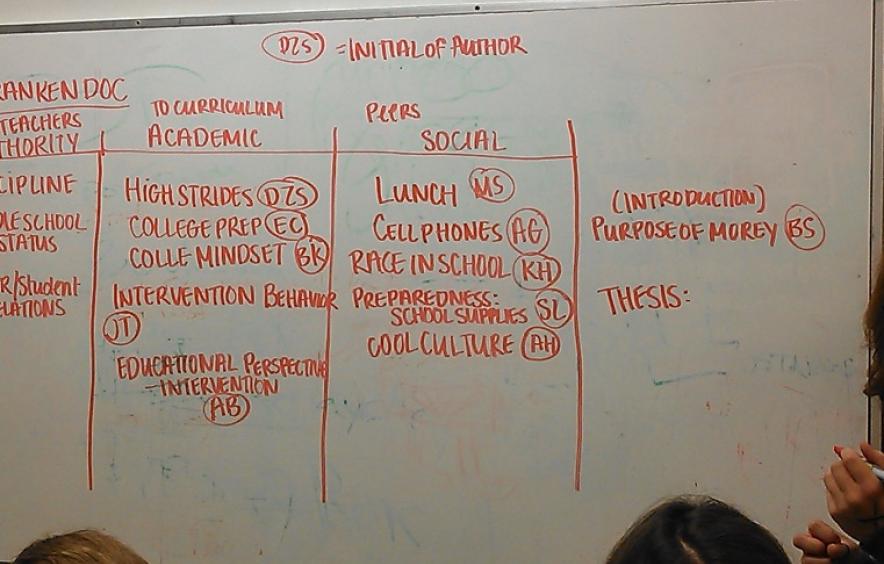 DZS = INITIAL OF AUTHOR
RANKEN DOC
TEACHERS
THORITY
CIPLINE
DLE SCHOOL
STATUS
R/Student
ELATIONS
TO CURRICULUM
ACADEMIC
HIGH STRIDES DZS
COLLEGE PREP EC
COLLE MINDSET BK
INTERVENTION BEHAVIOR
JT
EDUCATIONAL PERSPECTIVE
-INTERVENTION
AB
PEERS
SOCIAL
LUNCH MS
CELL PHONES AG
RACE IN SCHOOL KH
PREPAREDNESS:
SCHOOL SUPPLIES SL
COOL CULTURE AH
(INTRODUCTION)
PURPOSE OF MOREY BS
THESIS: